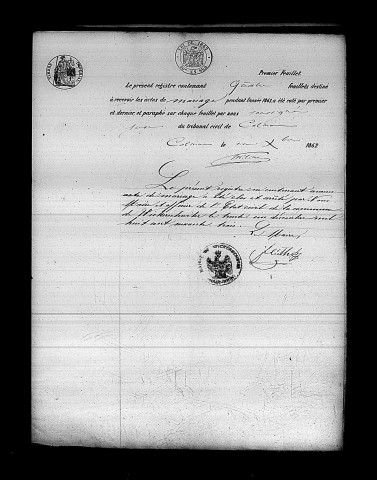 Premier Feuillet
Le présent registre contenant Quatre feuillets destiné
à recevoir les actes de mariage pendant l'année 1863, a été coté par premier
et dernier et paraphé sur chaque feuillet par nous
du tribunal civil de Colmar
Colmar le 1862
Le présent registre contenant aucun
acte de mariage a été clos et arrêté par nous
Maire et officier de l'Etat civil de la commune
de le trente un décembre mil
huit cent soixante trois.
Le Maire